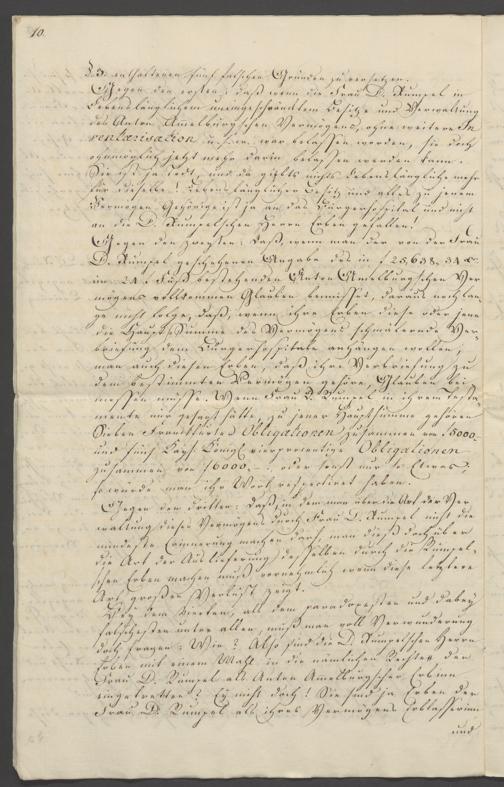 10.
§. 3. enthaltenen fünf falschen Gründen zu versetzen.
Gegen den ersten: daß wenn die Frau D. Rumpel in
Lebenslänglichem uneingeschränktem Besitze und Verwaltung
des Anton Amelburgschen Vermögens, ohne weitere In
ventarisation u. s. w. war belassen worden, sie doch
ohnmöglich jetzt mehr darin belassen werden kann.
Sie ist ja todt, und da giebts nichts Lebenslängliches mehr
für dieselbe! Lebenslänglicher Besitz und alles zu jenem
Vermögen Gehörige ist ja an das Burgerhospital und nicht
an die D. Rumpelschen Herrn Erben gefallen!
Gegen den zweyten: Daß, wenn man der von der Frau
D. Rumpel geschehenen Angabe des in f 25,658. 34 x.
im 24 f Fuß bestehenden Anton Amelburgschen Ver
mögens vollkommen Glauben beymisset, daraus noch lan
ge nicht folge, daß, wenn ihre Erben diese oder jene
die Haupt Summe des Vermögens schmälernde Ver
briefung dem Burgerhospitale anhängen wollen,
man auch diesen Erben, daß ihre Verbriefung zu
dem bestimmten Vermögen gehöre, Glauben bei
messen müsse. Wenn Frau D. Rumpel in ihrem Testa
mente nur gesagt hätte, zu jener Hauptsumme gehören
Sieben Frankfurter Obligationen zusammen von f 5000.-
und fünf Kayl. Königl. vierprocentige Obligationen
zusammen von f 6000.-, oder sonst nur so Etwas,
so würde man ihr Wort respectiret haben.
Gegen den dritten: Daß, indem man über die Art der Ver
waltung dieses Vermögens durch Frau D. Rumpel nicht die
mindeste Erinnerung machen darf, man dieß doch über
die Art der Auslieferung desselben durch die Rumpel-
schen Erben machen muß, vornehmlich wenn diese letztere
Art großen Verlust zeigt.
Bey dem vierten, als dem paradoxesten und dabey
falschesten unter allen, muß man voll Verwunderung
doch fragen: Wie? Also sind die D. Rumpelschen Herrn
Erben mit einem Mahl in die nämlichen Rechte der
Frau D. Rumpel als Anton Amelburgscher Erbinn
eingetretten? Ey nicht doch! Sie sind ja Erben der
Frau D. Rumpel als ihres Vermögens Erblasserinn
und